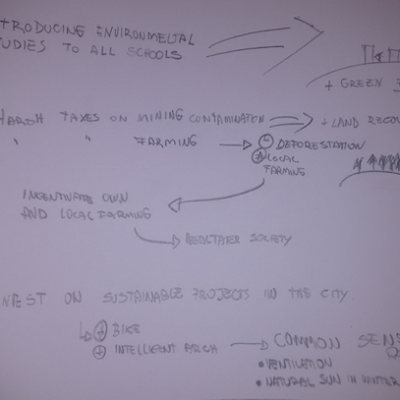 TRODUCING ENVIRONMELTAL
UDIES TO ALL SCHOOLS
+ GREEN
HARSH TAXES ON MINING CONTAMINATION + LAND RECOV
" " FARMING - DEFORESTATION
+ LOCAL
FARMING
INCENTIVATE OWN
AND LOCAL FARMING
SOCIETY
NVEST ON SUSTAINABLE PROJECTS IN THE CITY
+ BIKE
+ INTELLIGENT ARCH COMMON SEN
• VENTILATION
• NATURAL SUN IN WINTER